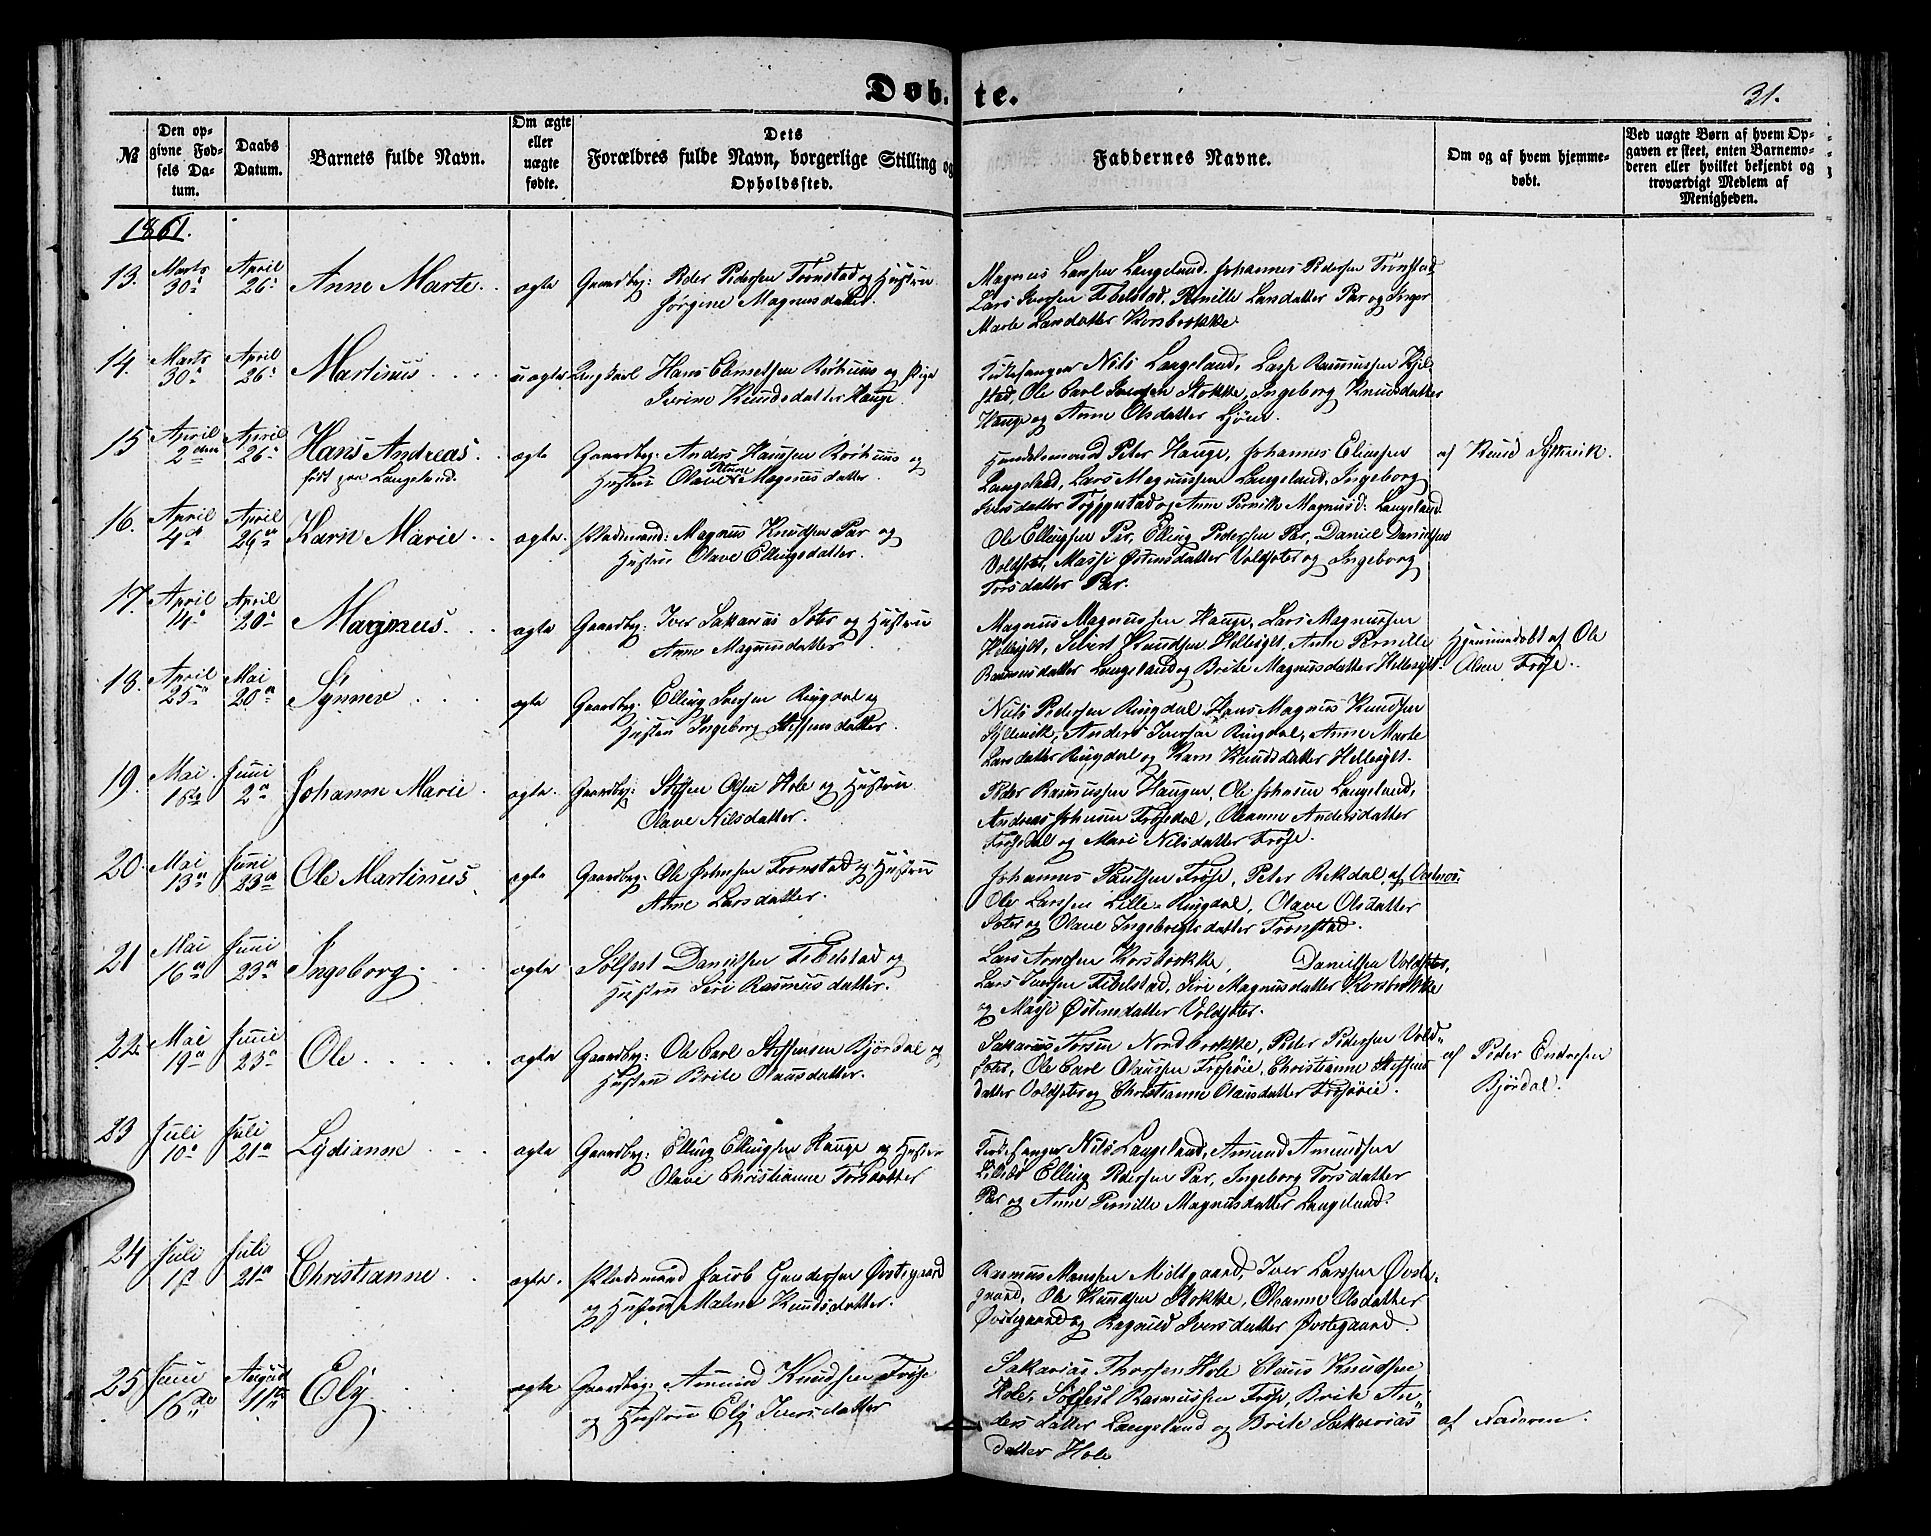 Døbte.
31.
№
Den opgivne Fødsels Datum.
Daabs Datum.
Barnets fulde Navn.
Om ægte eller uægte fødte.
Dets Forældres fulde Navn, borgerlige Stilling og Opholdssted.
Faddernes Navne.
Om og af hvem hjemmedøbt.
Ved uægte Børn af hvem Opgaven er skeet, enten Barnemoderen eller hvilket bekjendt og troværdigt Medlem af Menigheden.
1861.
13. Marts 30. April 26. Anne Marte. ægte Gaardbr: Peder Pedersen Tronstad og Hustru
Jørgine Magnusdatter.
Magnus Larssen Langeland, Johannes Pedersen Tronstad
Lars Iverssen Febelstad, Pernille Larsdatter Par og Inger
Marte Larsdatter Korsbrekke.
14. Marts 30. April 26. Martinus uægte Ungkarl Hans Hansen og Pige
Iverine Knudsdatter Hauge.
Kirkesanger Nils Langeland, Rasmussen
Ole Carl Iversen Stokke, Ingeborg Knudsdatter
Hauge og Anne Olsdatter
15 April 2den April 26. Hans Andreas. ægte Gaardbr: Anders Hanssen og
født paa Langeland.
Hustru Olave Magnusdatter.
Handelsmand Peter Hauge, Johannes
Langeland, Lars Magnussen Langeland, Ingeborg
Iversdatter og Anne Pernille Magnusd: Langeland
af Knud
16. April 4de April 26. Karn Marie ægte. Pladsmand: Magnus Knudsen Par og
Hustru Olave Ellingsdatter.
Ole Ellingsen Par, Elling Pedersen Par, Daniel Danielsen
Voldsæter, Massi Østensdatter Voldsæter og Ingeborg
Torsdatter Par.
17. April 14. April 20. Magnus. ægte Gaardbr: Iver Sakarias Sæter og Hustru
Anne Magnusdatter
Magnus Magnussen Hauge, Lars Magnussen
Hellesylt, Sivert Hellesylt, Anne Pernille
Rasmusdatter Langeland og Brite Magnusdatter Hellesylt.
Hjemmedøbt af Ole
Olsen Frøse.
18. April 25. Mai 20. Synnev ægte Gaardbr. Elling Iversen Ringdal og
Hustru Ingeborg Steffensdatter.
Nils Pedersen Ringdal, Hans Magnus Knudsen
Anders Iversen Ringdal, Anne Marte
Larsdatter Ringdal og Karn Knudsdatter Hellesylt.
19. Mai Juni 2. Johanne Marie ægte. Gaardbr: Steffen Olsen Hole og Hustru
Olave Nilsdatter.
Peder Rasmussen Haugen, Ole Johnsen Langeland,
Andreas Johnsen Frøsedal, Oleanne Andersdatter
Frøsedal og Mari Nilsdatter Frøse.
20. Mai 13. Juni 23. Ole Martinus. ægte Gaardbr: Ole Johnsen Tronstad og Hustru
Anne Larsdatter.
Johannes Paulsen Frøse, Peter Rekdal, af
Ole Larssen Lille-Ringdal, Olave Olsdatter
Sæter og Olave Ingebrigtsdatter Tronstad.
21 Mai 16. Juni 23. Ingeborg. ægte Sølfest Danielsen Febelstad og
Hustru Siri Rasmusdatter.
Lars Arnesen Korsbrekke, Danielsen Voldsæter,
Lars Iversen Febelstad, Siri Magnusdatter Korsbrekke
og Massi Østensdatter Voldsæter.
22. Mai 19. Juni 23. Ole ægte Gaardbr: Ole Carl Steffensen Bjørdal og
Hustru Brite Olausdatter.
Sakarias Torsen Nordbrekke, Peder Pedersen Vold-
sæter, Ole Carl Olaussen Frøsøie, Christianne Steffens-
datter Voldsæter og Christianne Olausdatter Frøsøie.
af Peder Endresen
Bjørdal.
23 Juli 10. Juli 21. Lydianne ægte Gaardbr: Elling Ellingsen Hauge og Hustru
Olave Christianne Torsdatter
Kirkesanger Nils Langeland, Amund Amundsen
Elling Pedersen Par, Ingeborg Torsdatter
Par og Anne Pernille Magnusdatter Langeland.
24 Juli Juli 21. Christianne ægte. Pladsmand Jacob Gundersen Øvstegaard
og Hustru Malene Knudsdatter.
Rasmus Monssen Midtgaard, Iver Larssen Øvste-
gaard, Ole Knudsen Stokke, Oleanne Olsdatter
Øvstegaard og Ragnild Iversdatter Øvstegaard.
25 Juni 16de August 11te Ely ægte Gaardbr: Amund Knudsen Frøse
og Hustru Ely Iversdatter
Sakarias Thorsen Hole Claus Knudsen
Hole, Sølfest Rasmussen Frøse, Brite An-
dersdatter Langeland og Brite Sakarias
datter Hole
af Faderen.